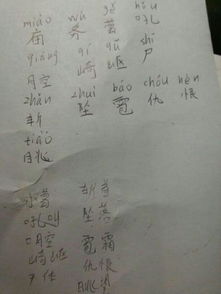 miáo wù gě hǒu
庙 务 葛 吼
qiāng qí qū shī
腔 崎 岖 尸
zhǎn zhuì báo chóu hèn
斩 坠 雹 仇 恨
tiào
眺
水葛 斩首
吼叫 坠落
口腔 雹霜
崎岖 仇恨
尸体 眺望